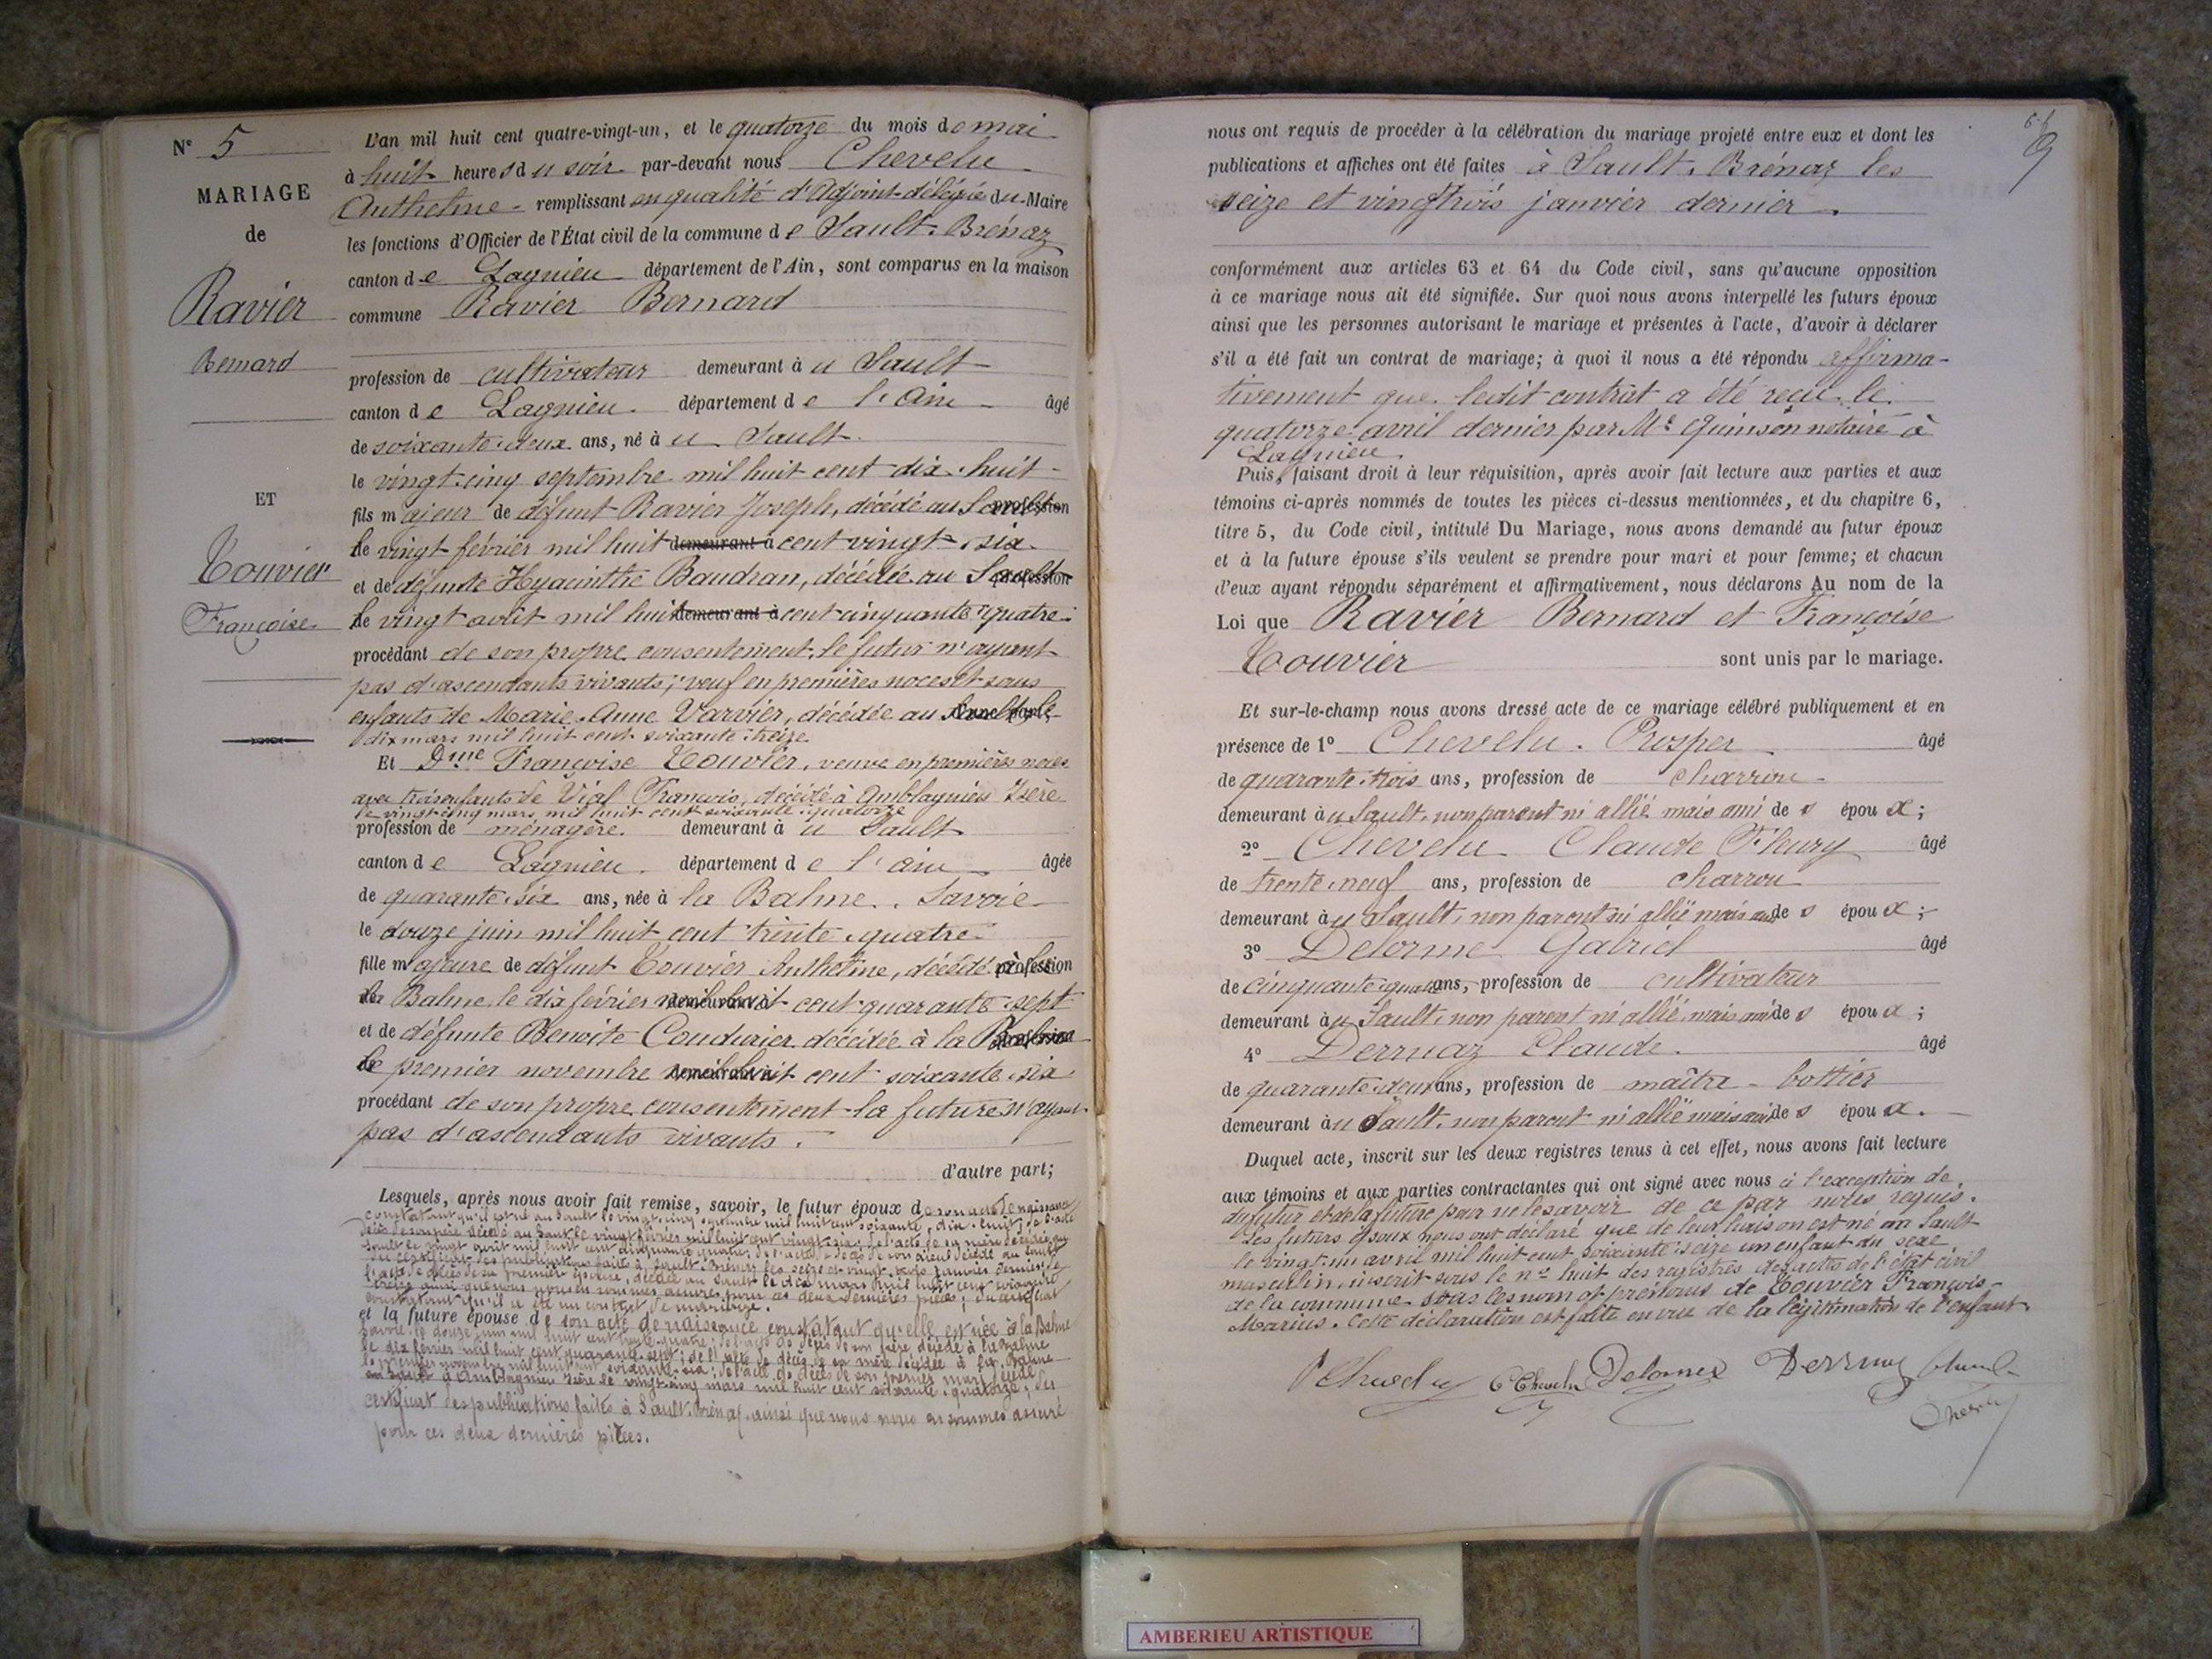 N° 5
MARIAGE
de
Ravier
Bernard
ET
Touvier
Françoise
L'an mil huit cent quatre-vingt-un, et le quatorze du mois de mai
à huit heures du soir par-devant nous Chevelu
Anthelme - remplissant en qualité d'Adjoint-délégué du Maire
les fonctions d'Officier de l'État civil de la commune de Sault-Brénaz
canton de Lagnieu département de l'Ain, sont comparus en la maison
commune Ravier Bernard
profession de cultivateur demeurant à u Sault
canton de Lagnieu. département de l'Ain âgé
de soixante-deux ans, né à u Sault
le vingt-cinq septembre mil huit cent dix-huit
fils majeur de défunt Ravier Joseph, décédé au Sault profession
le vingt février mil huit demeurant à cent vingt-six
et de défunte Hyacinthe Baudran, décédée au Sault profession
le vingt août mil huit demeurant à cent cinquante-quatre
procédant de son propre consentement, le futur n'ayant
pas d'ascendants vivants; veuf en premières noces et sans
enfants de Marie-Anne Varvier, décédée au Sault le
dix mars mil huit cent soixante-treize
Et Dme Françoise Touvier, veuve en premières noces
avec trois enfants de Vial François, décédé à Amblagnieu Isère
le vingt-cinq mars mil huit cent soixante-quatorze
profession de ménagère. demeurant à u Sault
canton de Lagnieu. département de l'ain âgée
de quarante-six ans, née à la Balme. Savoie
le douze juin mil huit cent trente-quatre
fille majeure de défunt Touvier Anthelme, décédé à profession
la Balme, le dix février mil huit cent quarante-sept
et de défunte Benoite Coudurier décédée à la Balme
le premier novembre mil huit cent soixante-six
procédant de son propre consentement la future n'ayant
pas d'ascendants vivants.
d'autre part;
Lesquels, après nous avoir fait remise, savoir, le futur époux de son acte de naissance
constatant qu'il est né au Sault le vingt-cinq septembre mil huit cent soixante, dix-huit; de l'acte
décès de son père décédé au Sault le vingt février mil huit cent vingt-six; de l'acte de sa mère décédée au
Sault le vingt août mil huit cent cinquante quatre; de l'acte de décès de son aieul décédé au Sault
du certificat des publications faites à Sault-Brénaz les seize et vingt-trois janvier dernier; de
l'acte de décès de sa première épouse, décédée au Sault le dix mars mil huit cent soixante
treize ainsi que nous nous en sommes assurés pour ces deux dernières pièces; du certificat
constatant qu'il a été un contrat de mariage.
et la future épouse de son acte de naissance constatant qu'elle est née à la Balme
Savoie le douze juin mil huit cent trente quatre; de l'acte de décès de son père décédé à la Balme
le dix février mil huit cent quarante-sept; de l'acte de décès de sa mère décédée à la Balme
le premier novembre mil huit cent soixante-six; de l'acte de décès de son premier mari décédé
à Amblagnieu Isère le vingt-cinq mars mil huit cent soixante-quatorze; du
certificat des publications faites à Sault-Brénaz, ainsi que nous nous en sommes assuré
pour ces deux dernières pièces.
9
nous ont requis de procéder à la célébration du mariage projeté entre eux et dont les
publications et affiches ont été faites à Sault-Brénaz les
seize et vingt trois janvier dernier.
conformément aux articles 63 et 64 du Code civil, sans qu'aucune opposition
à ce mariage nous ait été signifiée. Sur quoi nous avons interpellé les futurs époux
ainsi que les personnes autorisant le mariage et présentes à l'acte, d'avoir à déclarer
s'il a été fait un contrat de mariage; à quoi il nous a été répondu affirma-
tivement que ledit contrat a été reçu le
quatorze avril dernier par Me Quinson notaire à
Lagnieu.
Puis, faisant droit à leur réquisition, après avoir fait lecture aux parties et aux
témoins ci-après nommés de toutes les pièces ci-dessus mentionnées, et du chapitre 6,
titre 5, du Code civil, intitulé Du Mariage, nous avons demandé au futur époux
et à la future épouse s'ils veulent se prendre pour mari et pour femme; et chacun
d'eux ayant répondu séparément et affirmativement, nous déclarons Au nom de la
Loi que Ravier Bernard et Françoise
Touvier sont unis par le mariage.
Et sur-le-champ nous avons dressé acte de ce mariage célébré publiquement et en
présence de 1° Chevelu. Prosper âgé
de quarante-trois ans, profession de charron
demeurant à u Sault, non parent ni allié mais ami de s épou x;
2° Chevelu Claude Fleury âgé
de trente-neuf ans, profession de charron
demeurant à u Sault, non parent ni allié mais ami de s épou x;
3° Delorme Gabriel âgé
de cinquante-quatre ans, profession de cultivateur
demeurant à u Sault, non parent ni allié mais ami de s épou x;
4° Dernaz Claude. âgé
de quarante-deux ans, profession de maître-bottier
demeurant à u Sault, non parent ni allié mais ami de s épou x.
Duquel acte, inscrit sur les deux registres tenus à cet effet, nous avons fait lecture
aux témoins et aux parties contractantes qui ont signé avec nous à l'exception de
du futur et de la future pour ne le savoir de ce par nous requis.
Les futurs époux nous ont déclaré que de leur liaison est né au Sault
le vingt-un avril mil huit cent soixante-seize un enfant du sexe
masculin, inscrit sous le n° huit des registres des actes de l'état civil
de la commune sous les nom et prénoms de Touvier François-
Marius. Cette déclaration est faite en vue de la légitimation de l'enfant.
P Chevelu C Chevelu Delormes Dernaz Claude
Chevelu
AMBERIEU ARTISTIQUE